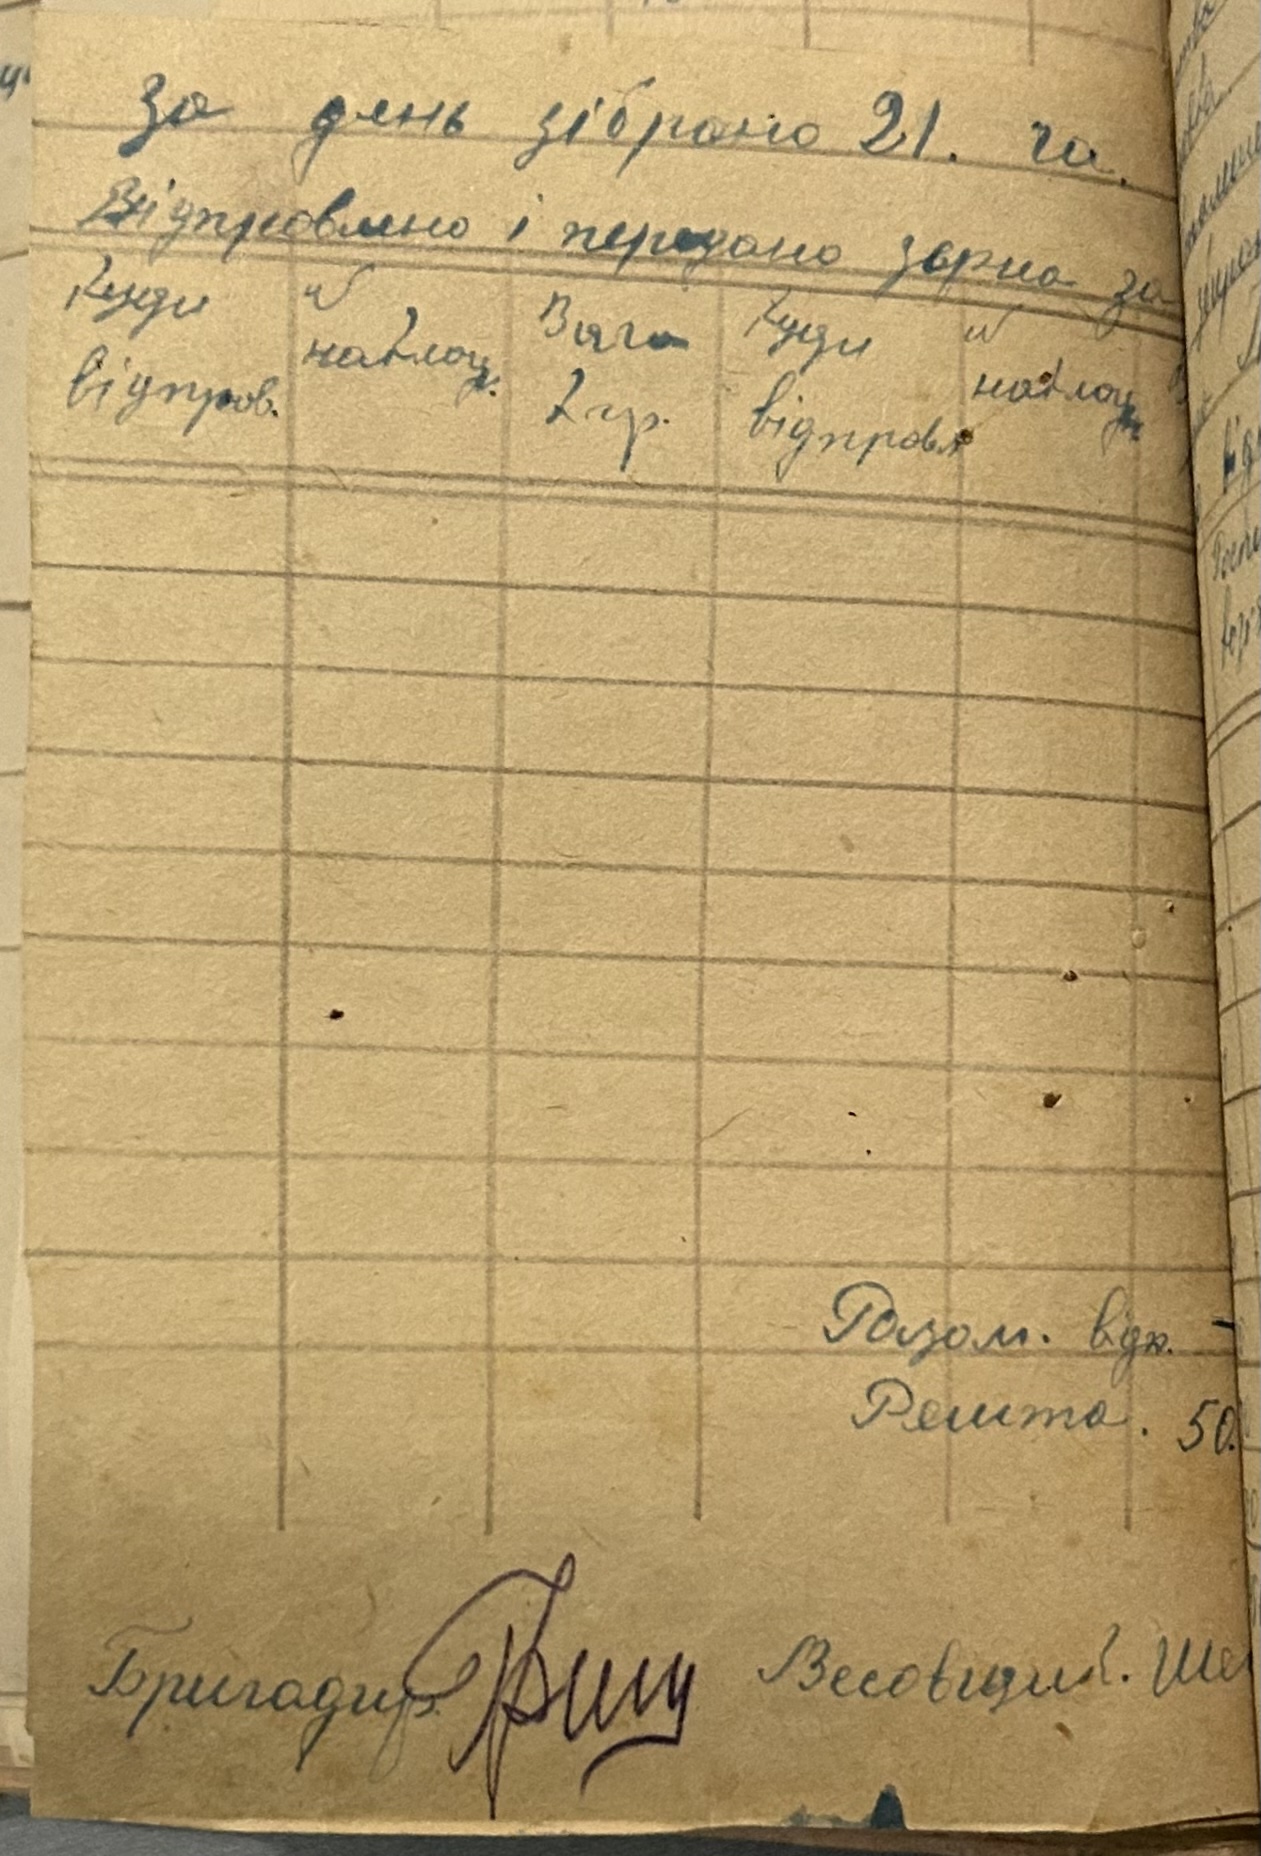 За день зібрано 21. га.
Відправлено і передано зерна за
Куди
відправ.
№
накладн.
Вага
кгр.
Куди
відправл
№
накладн
Разом. відп. -
Решта. 50.
Бригадир. Весовщик. Ше